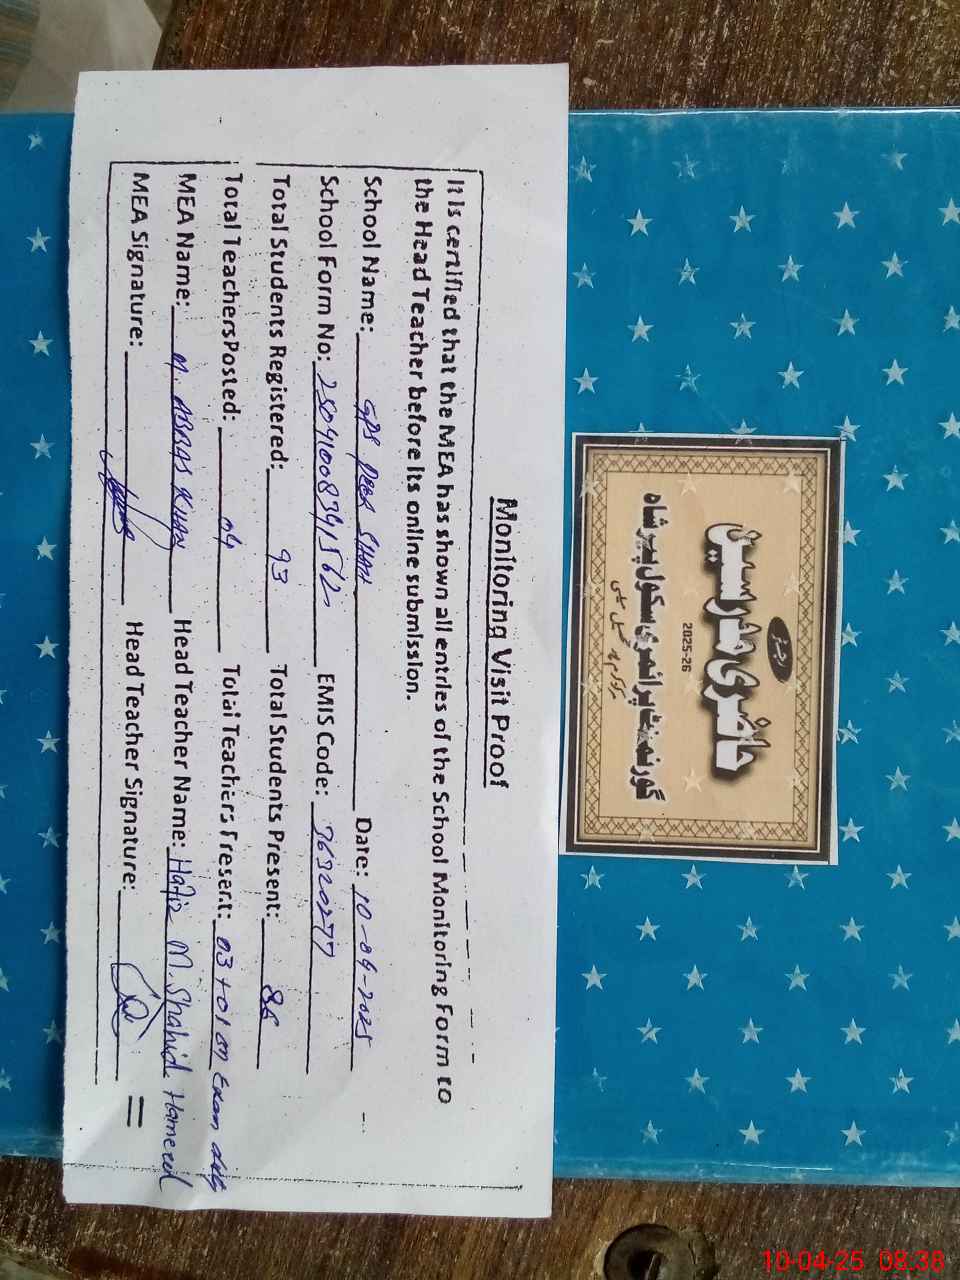 Monitoring Visit Proof
It is certified that the MEA has shown all entries of the School Monitoring Form to
the Head Teacher before its online submission.
School Name: GPS PEER SHAH Date: 10-04-2025
School Form No: EMIS Code: 36320277
Total Students Registered: 93 Total Students Present: 86
Total Teachers Posted: 04 Total Teachers Present: 03+01 on Exam duty
MEA Name: M. ABBAS KHAN Head Teacher Name: Hafiz M. Shahid Hameed
MEA Signature: Head Teacher Signature:
رجسٹر
حاضری مدرسین
2025-26
گورنمنٹ پرائمری سکول پیر شاہ
10-04-25 08:38